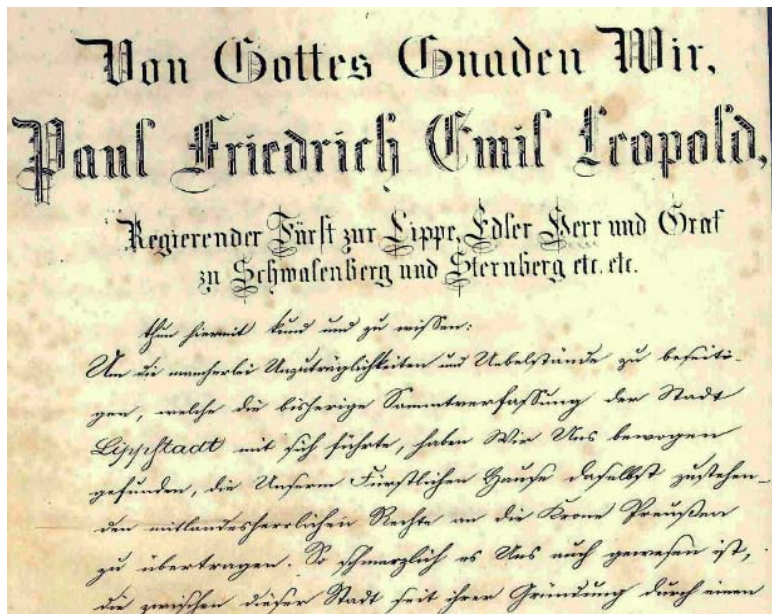 Von Gottes Gnaden Wir,
Paul Friedrich Emil Leopold,
Regierender Fürst zur Lippe, Edler Herr und Graf
zu Schwalenberg und Sternberg etc. etc.
thun hiermit kund und zu wissen:
Um die mancherlei Unzuträglichkeiten und Uebelstände zu beseiti-
gen, welche die bisherige Sammtverfassung der Stadt
Lippstadt mit sich führte, haben Wir Uns bewogen
gefunden, die Unserm Fürstlichen Hause daselbst zustehen-
den mitlandesherrlichen Rechte an die Krone Preußen
zu übertragen. So schmerzlich es Uns auch gewesen ist,
die zwischen dieser Stadt seit ihrer Gründung durch einen